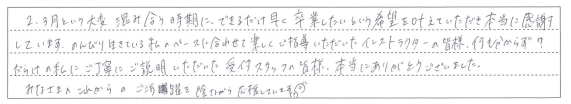 2、3月という大変 混み合う時期に、できるだけ早く卒業したいという希望を叶えていただき本当に感謝
しています。のんびり生きている私のペースに合わせて楽しくご指導いただいたインストラクターの皆様、何も分からず
だらけの私にご丁寧にご説明いただいた受付スタッフの皆様、本当にありがとうございました。
みなさまのこれからのご活躍を陰ながら応援しています